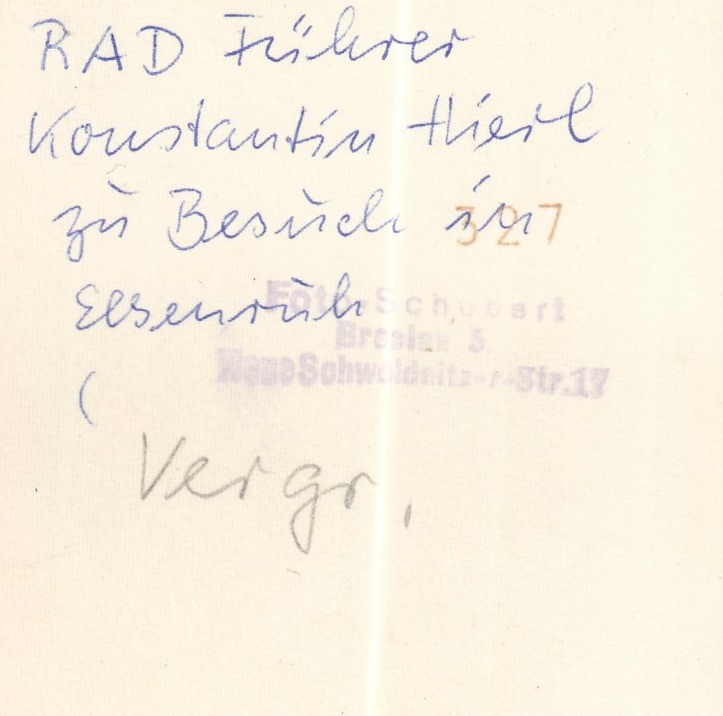 RAD Führer
Konstantin Hierl
zu Besuch in
327
Elsenruh
Foto-Schubert
Breslau 5
Neue Schweidnitzer-Str.17
(
Vergr.